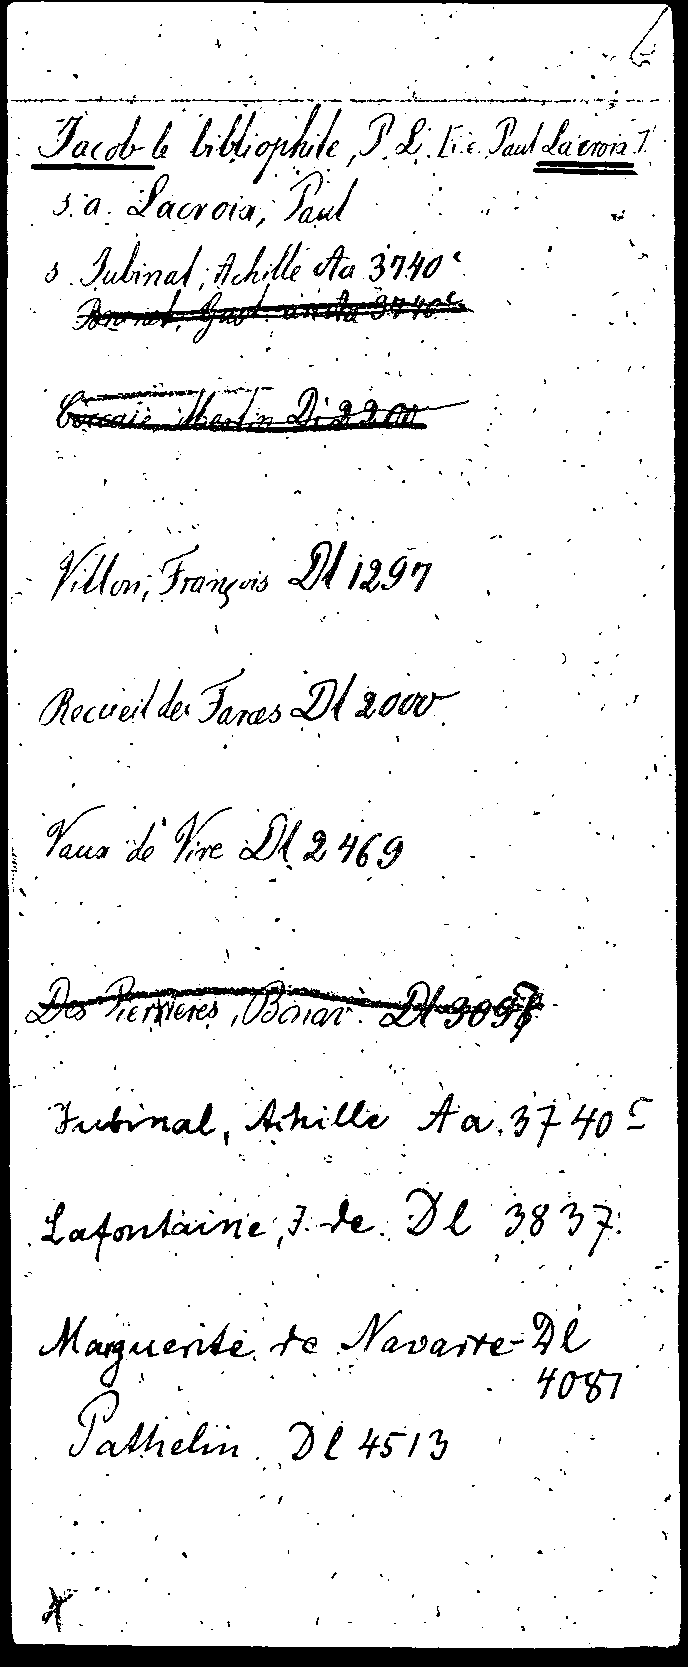 Jacob le bibliophile, P. L. [i.e. Paul Lacroix].
s. a. Lacroix, Paul
s. Jubinal, Achille Aa 3740c
Aa 3740c
Coccaie, Merlin Di 2200
Villon, François Dl 1297
Recueil de Farces Dl 2000
Vaux de Vire Dl 2469
Des Perrieres, Bonav. Dl 3097
Jubinal, Achille Aa 3740c
Lafontaine, J. de. Dl 3837
Marguerite de Navarre Dl
4087
Pathelin Dl 4513